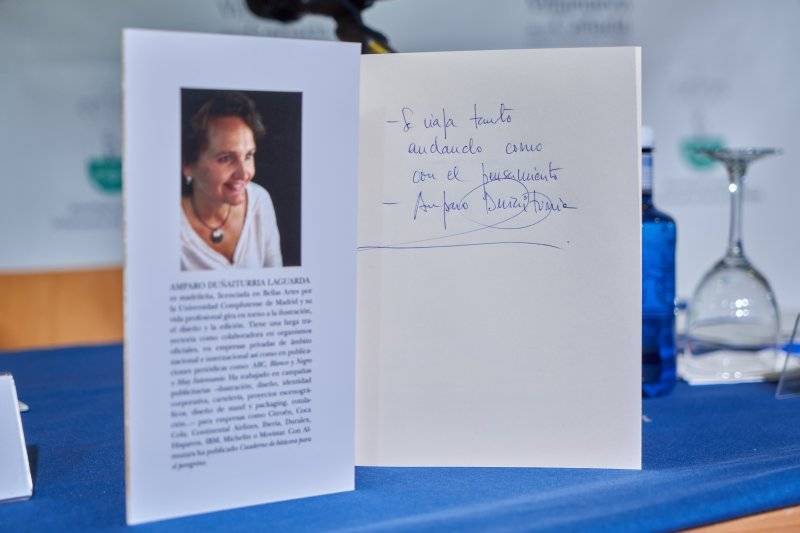 AMPARO DUÑAITURRIA LAGUARDA
es madrileña, licenciada en Bellas Artes por
la Universidad Complutense de Madrid y su
vida profesional gira en torno a la ilustración,
el diseño y la edición. Tiene una larga tra-
yectoria como colaboradora en organismos
oficiales, en empresas privadas de ámbito
nacional e internacional así como en publica-
ciones periódicas como ABC, Blanco y Negro
o Muy Interesante. Ha trabajado en campañas
publicitarias –ilustración, diseño, identidad
corporativa, cartelería, proyectos escenográ-
ficos, diseño de stand y packaging, rotula-
ción...– para empresas como Citroën, Coca
Cola, Continental Airlines, Iberia, Durales,
Hispavox, IBM, Michelin o Movistar. Con Al-
muzara ha publicado Cuaderno de bitácora para
el peregrino.
- Se viaja tanto
andando como
con el pensamiento
- Amparo Duñaiturria